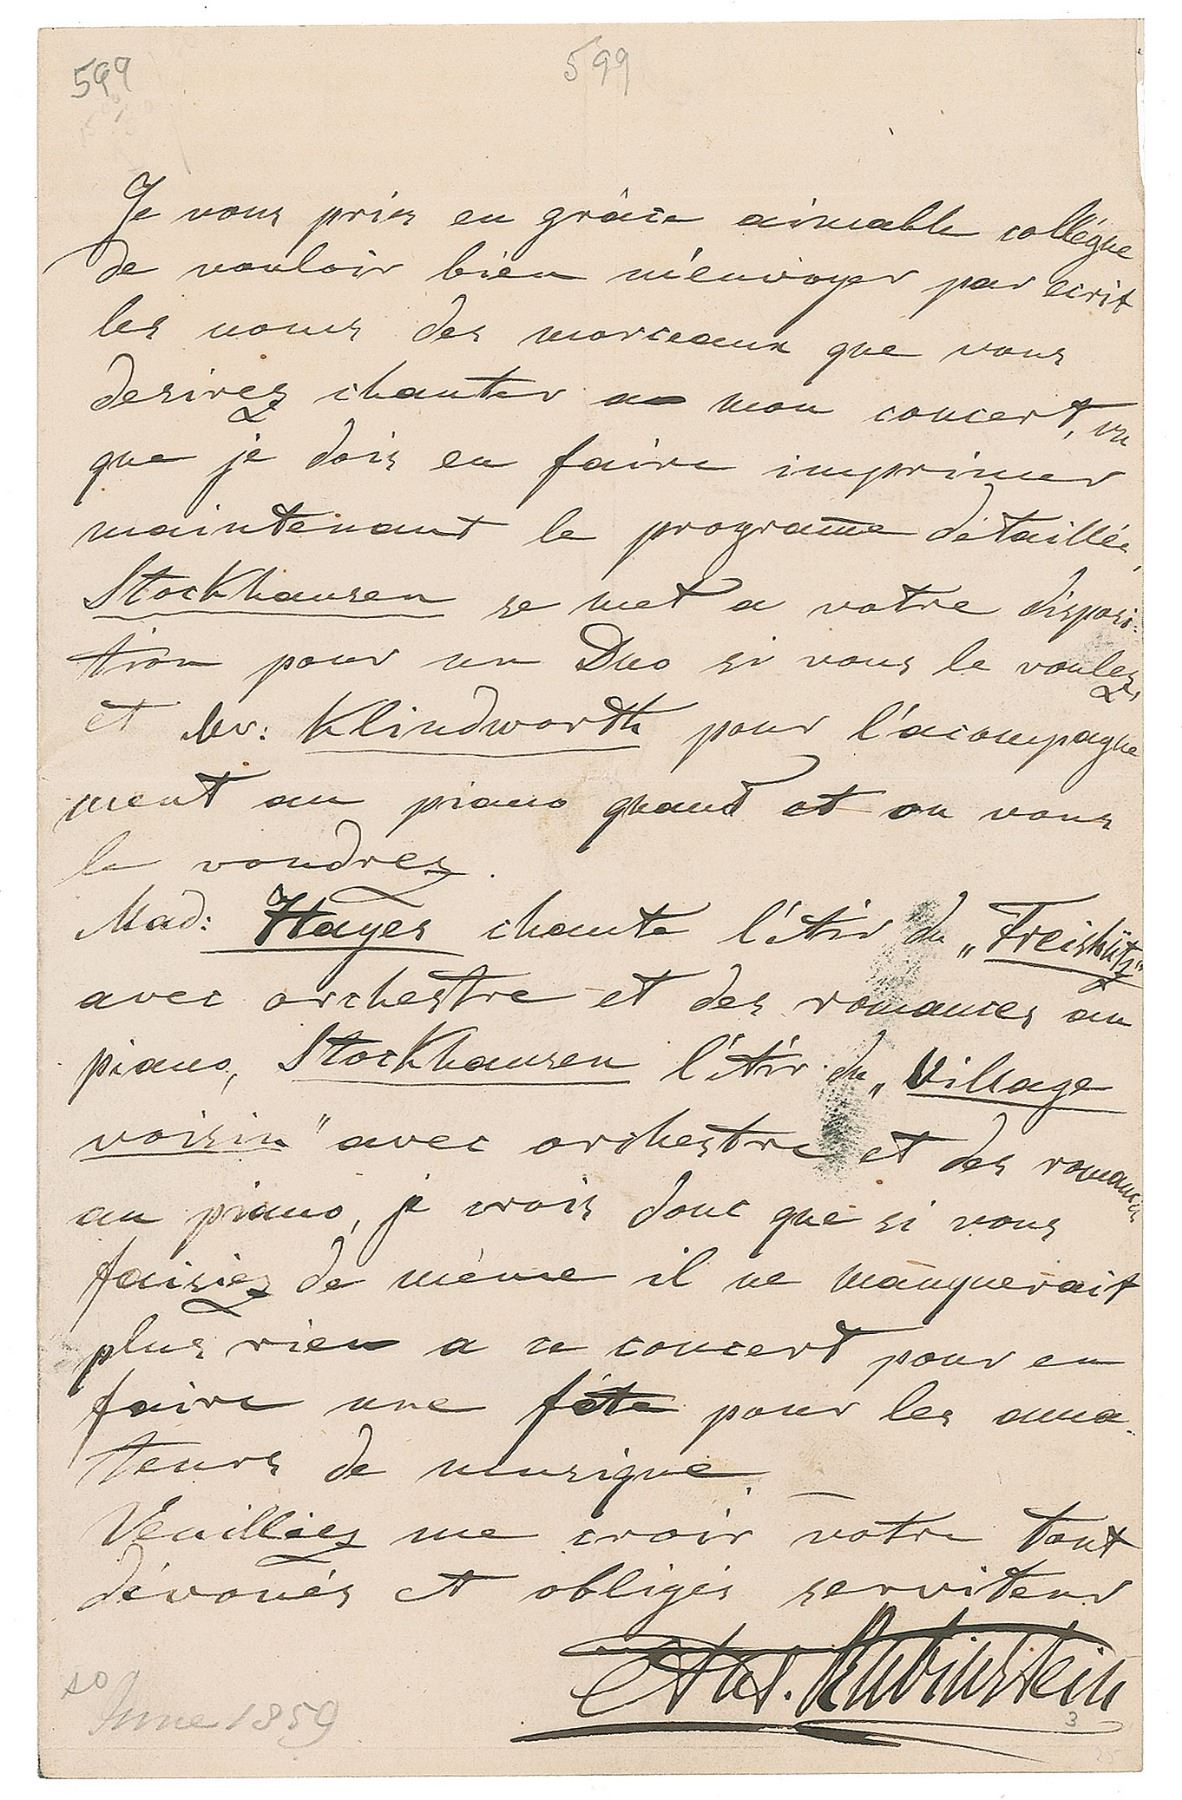 599 599
Je vous pries en grâce aimable collégue
de vouloir bien m'envoyer par ecrit
les noms des morceaux que vous
desirez chanter a mon concert, vu
que je dois en faire imprimer
maintenant le programe détaillée,
Stockhausen se met a votre disposi-
tion pour un Duo si vous le voulez,
et Mr: Klindworth pour l'acompagne
ment au piano quand et ou vous
le voudrez.
Mad: Hayes chante l'Air du „Freishütz"
avec orchestre et des romances au
piano, Stockhausen l'Air du „Village
voisin" avec orchestre et des romances
au piano, je crois donc que si vous
faisiez de même il ne manquerait
plus rien a ce concert pour en
faire une fête pour les ama-
teurs de musique.
Veuilliez me croir votre tout
dévoués et obligés serviteur
Ant. Rubinstein
10
June 1859
3
25